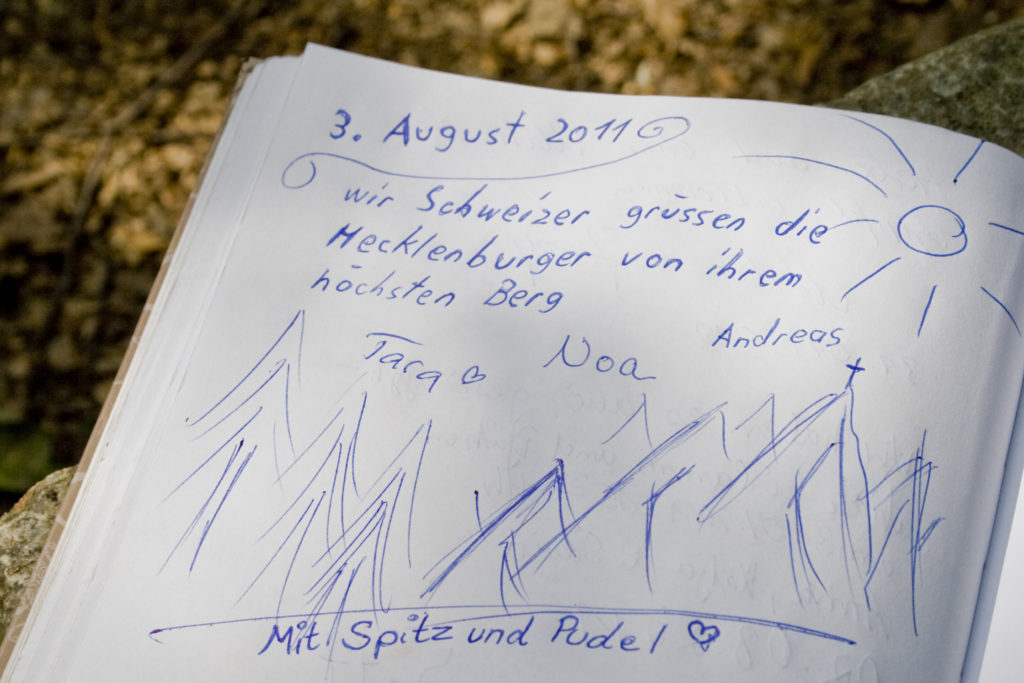 3. August 2011
wir Schweizer grüssen die
Mecklenburger von ihrem
höchsten Berg
Tara Noa Andreas
Mit Spitz und Pudel